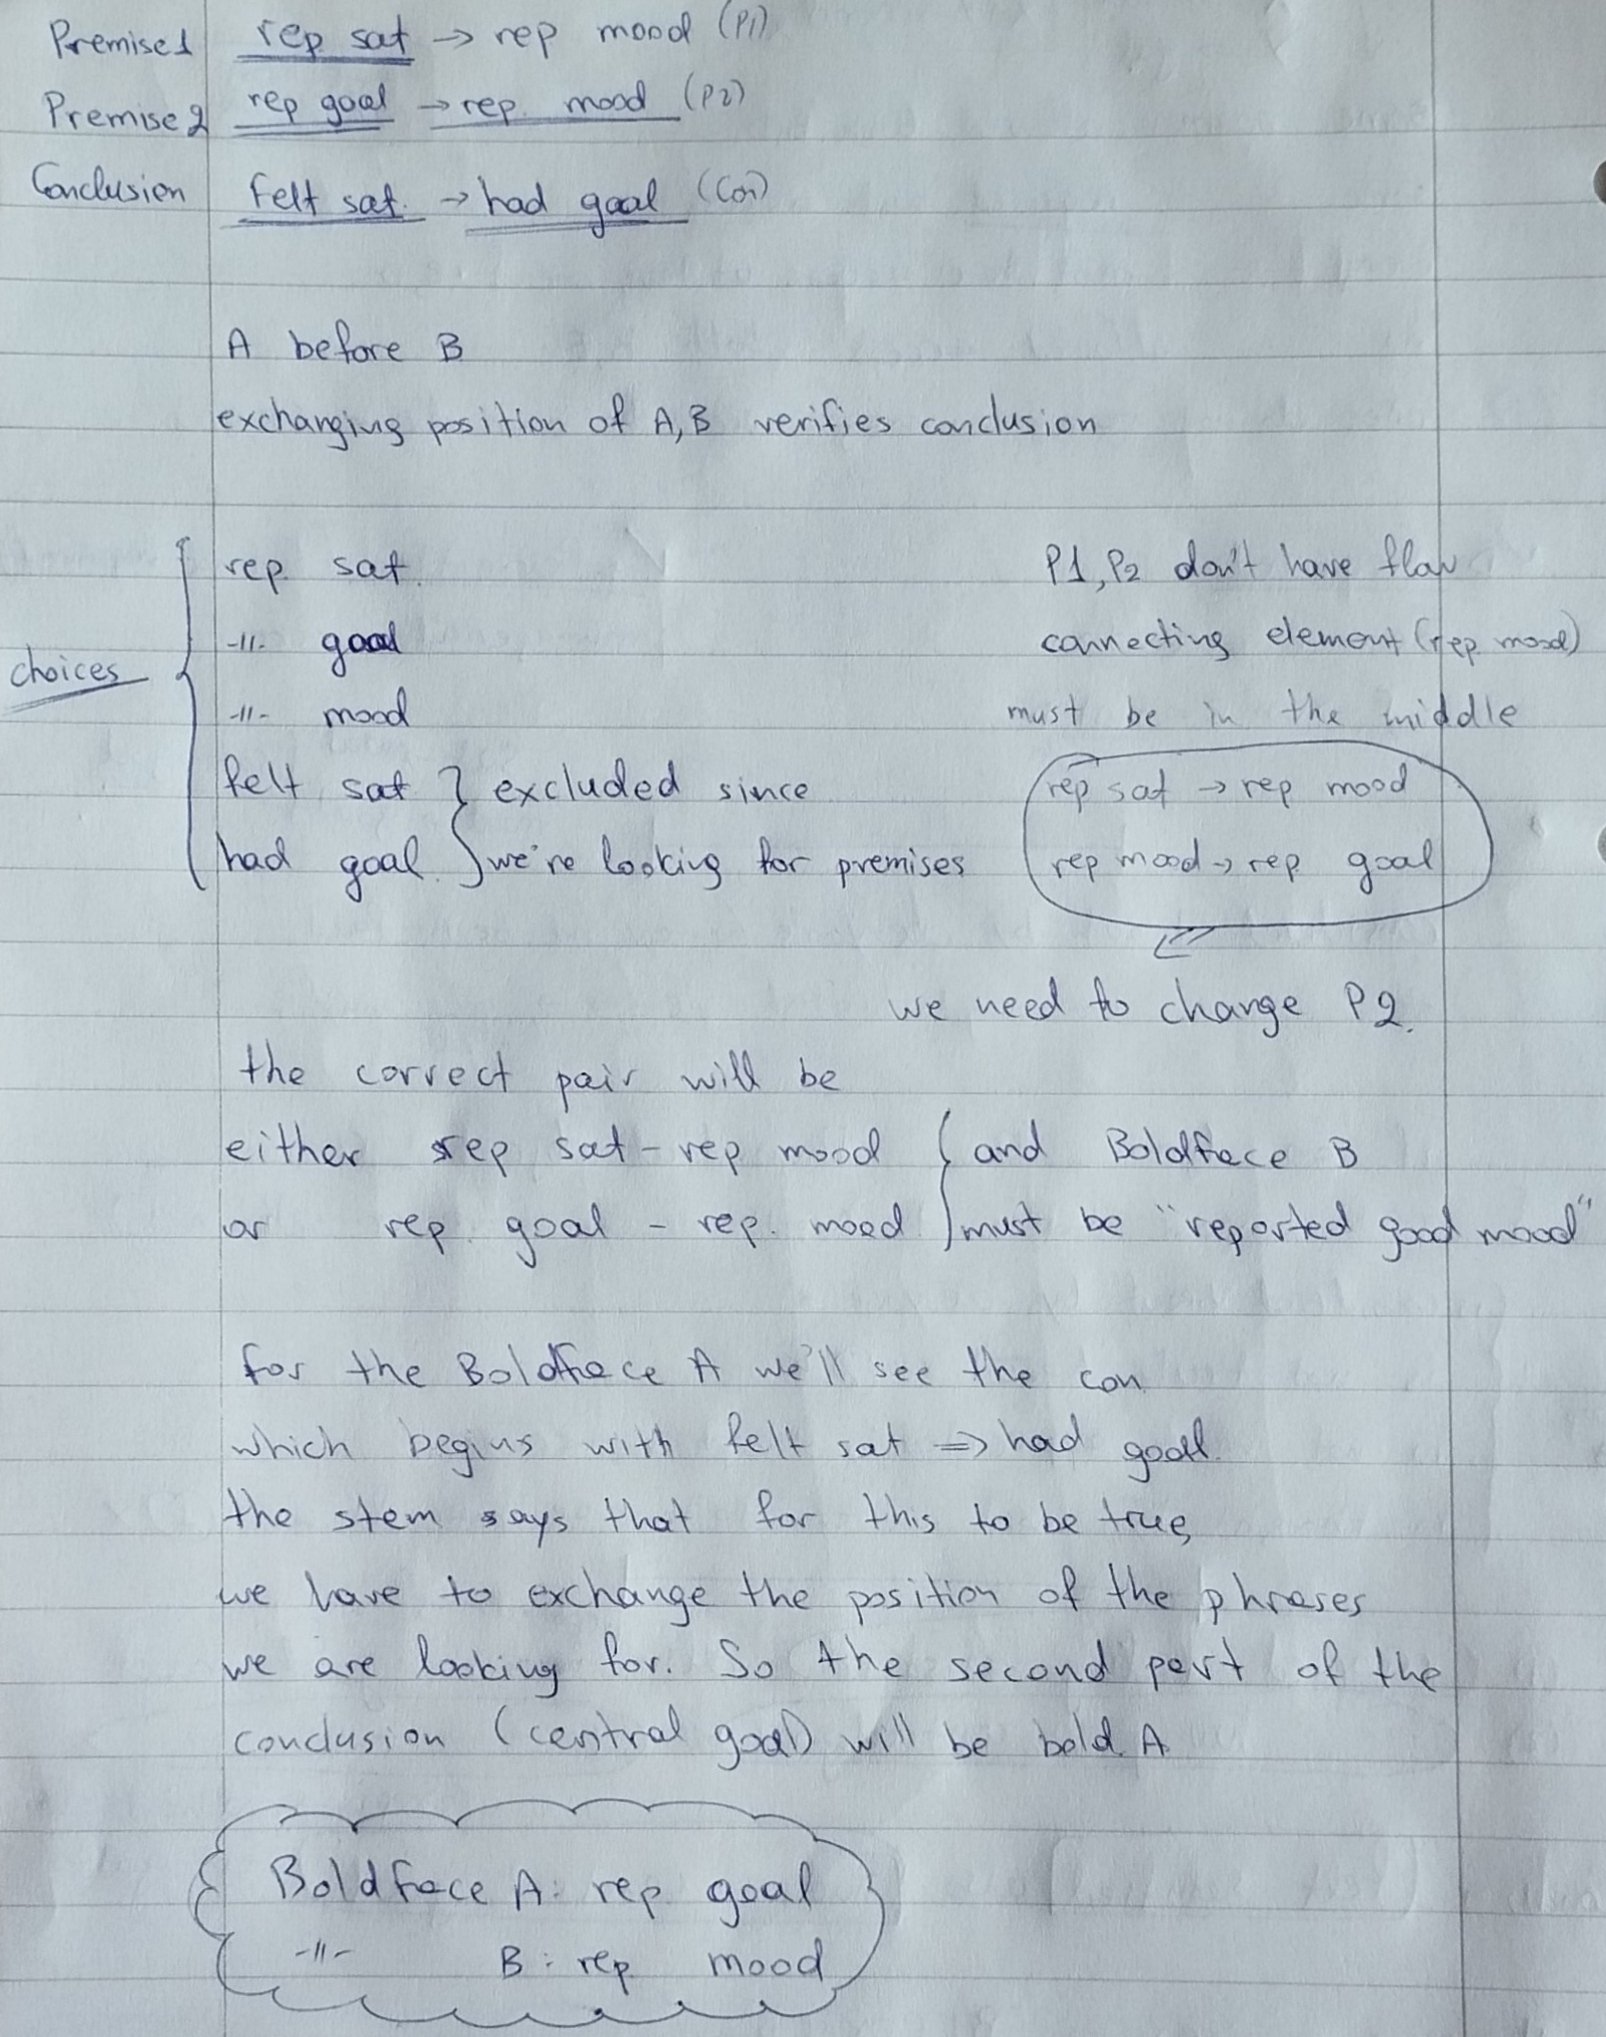 Premise1 rep sat → rep mood (P1)
Premise 2 rep goal → rep. mood (P2)
Conclusion felt sat. → had goal (Con)
A before B
exchanging position of A, B verifies conclusion
choices
rep. sat.
-||- goal
-||- mood
felt sat } excluded since
had goal. } we're looking for premises
P1, P2 don't have flaw
connecting element (rep. mood)
must be in the middle
rep sat → rep mood
rep mood → rep goal
we need to change P2.
the correct pair will be
either rep sat - rep mood { and Boldface B
or rep. goal - rep. mood } must be "reported good mood"
for the Boldface A we'll see the con
which begins with felt sat ⇒ had goal.
the stem says that for this to be true,
we have to exchange the position of the phrases
we are looking for. So the second part of the
conclusion (central goal) will be bold. A
Boldface A: rep. goal
-||- B: rep. mood